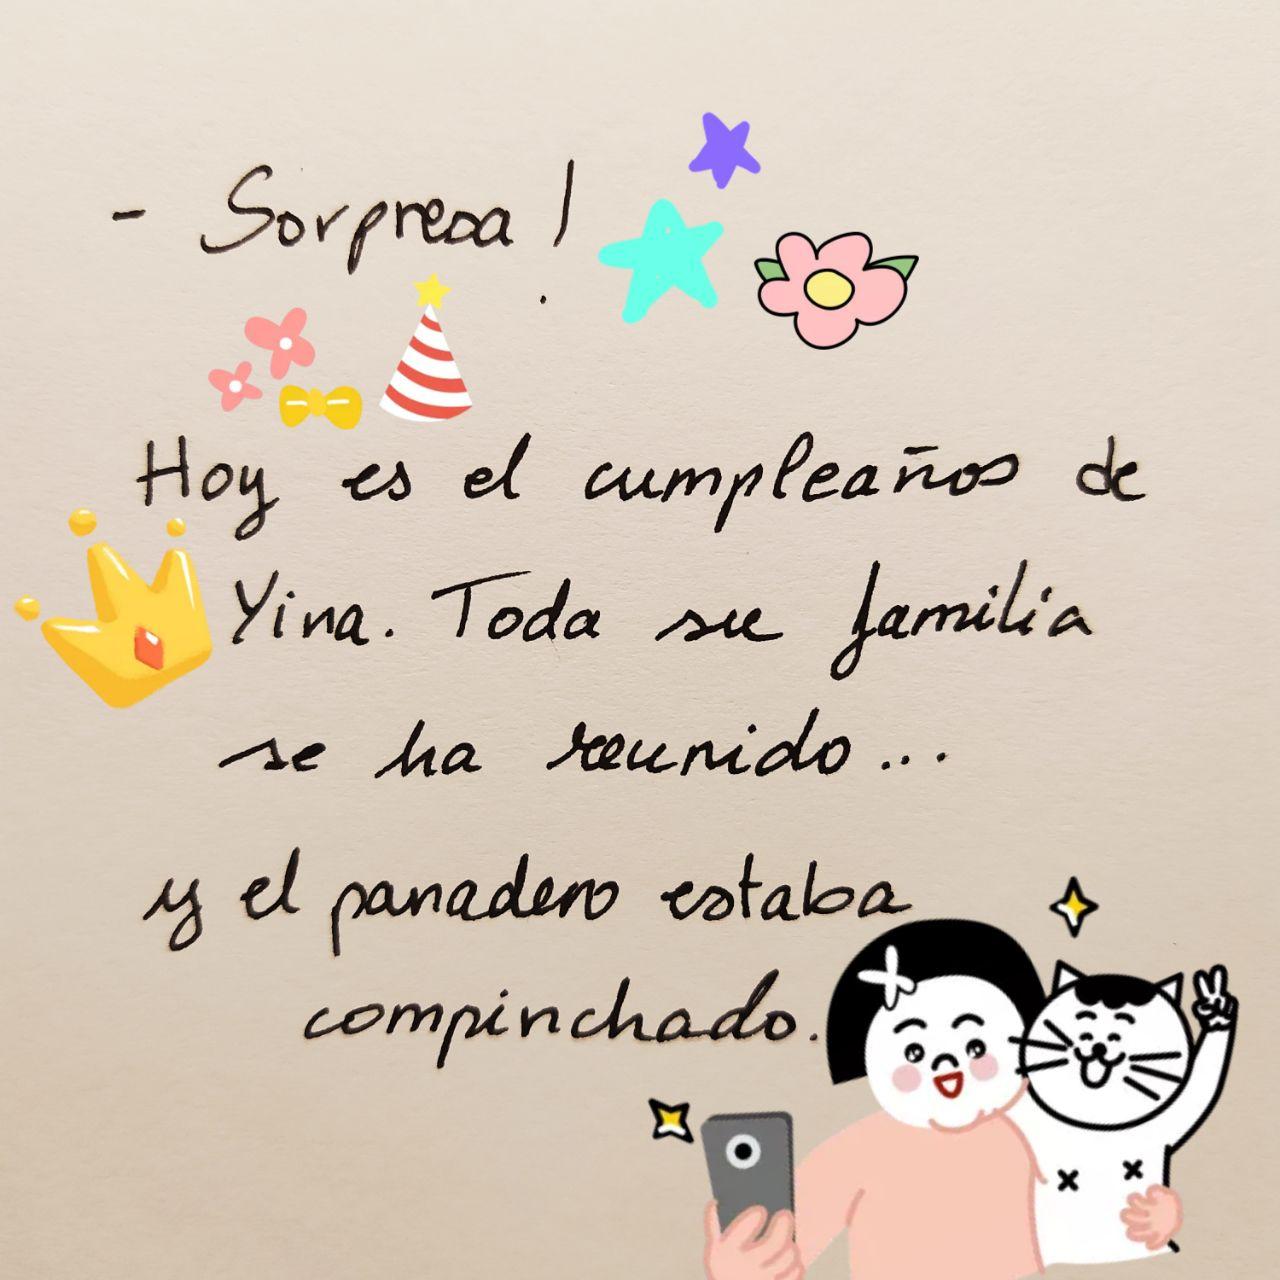 - Sorpresa!
Hoy es el cumpleaños de
Yina. Toda su familia
se ha reunido...
y el panadero estaba
compinchado.